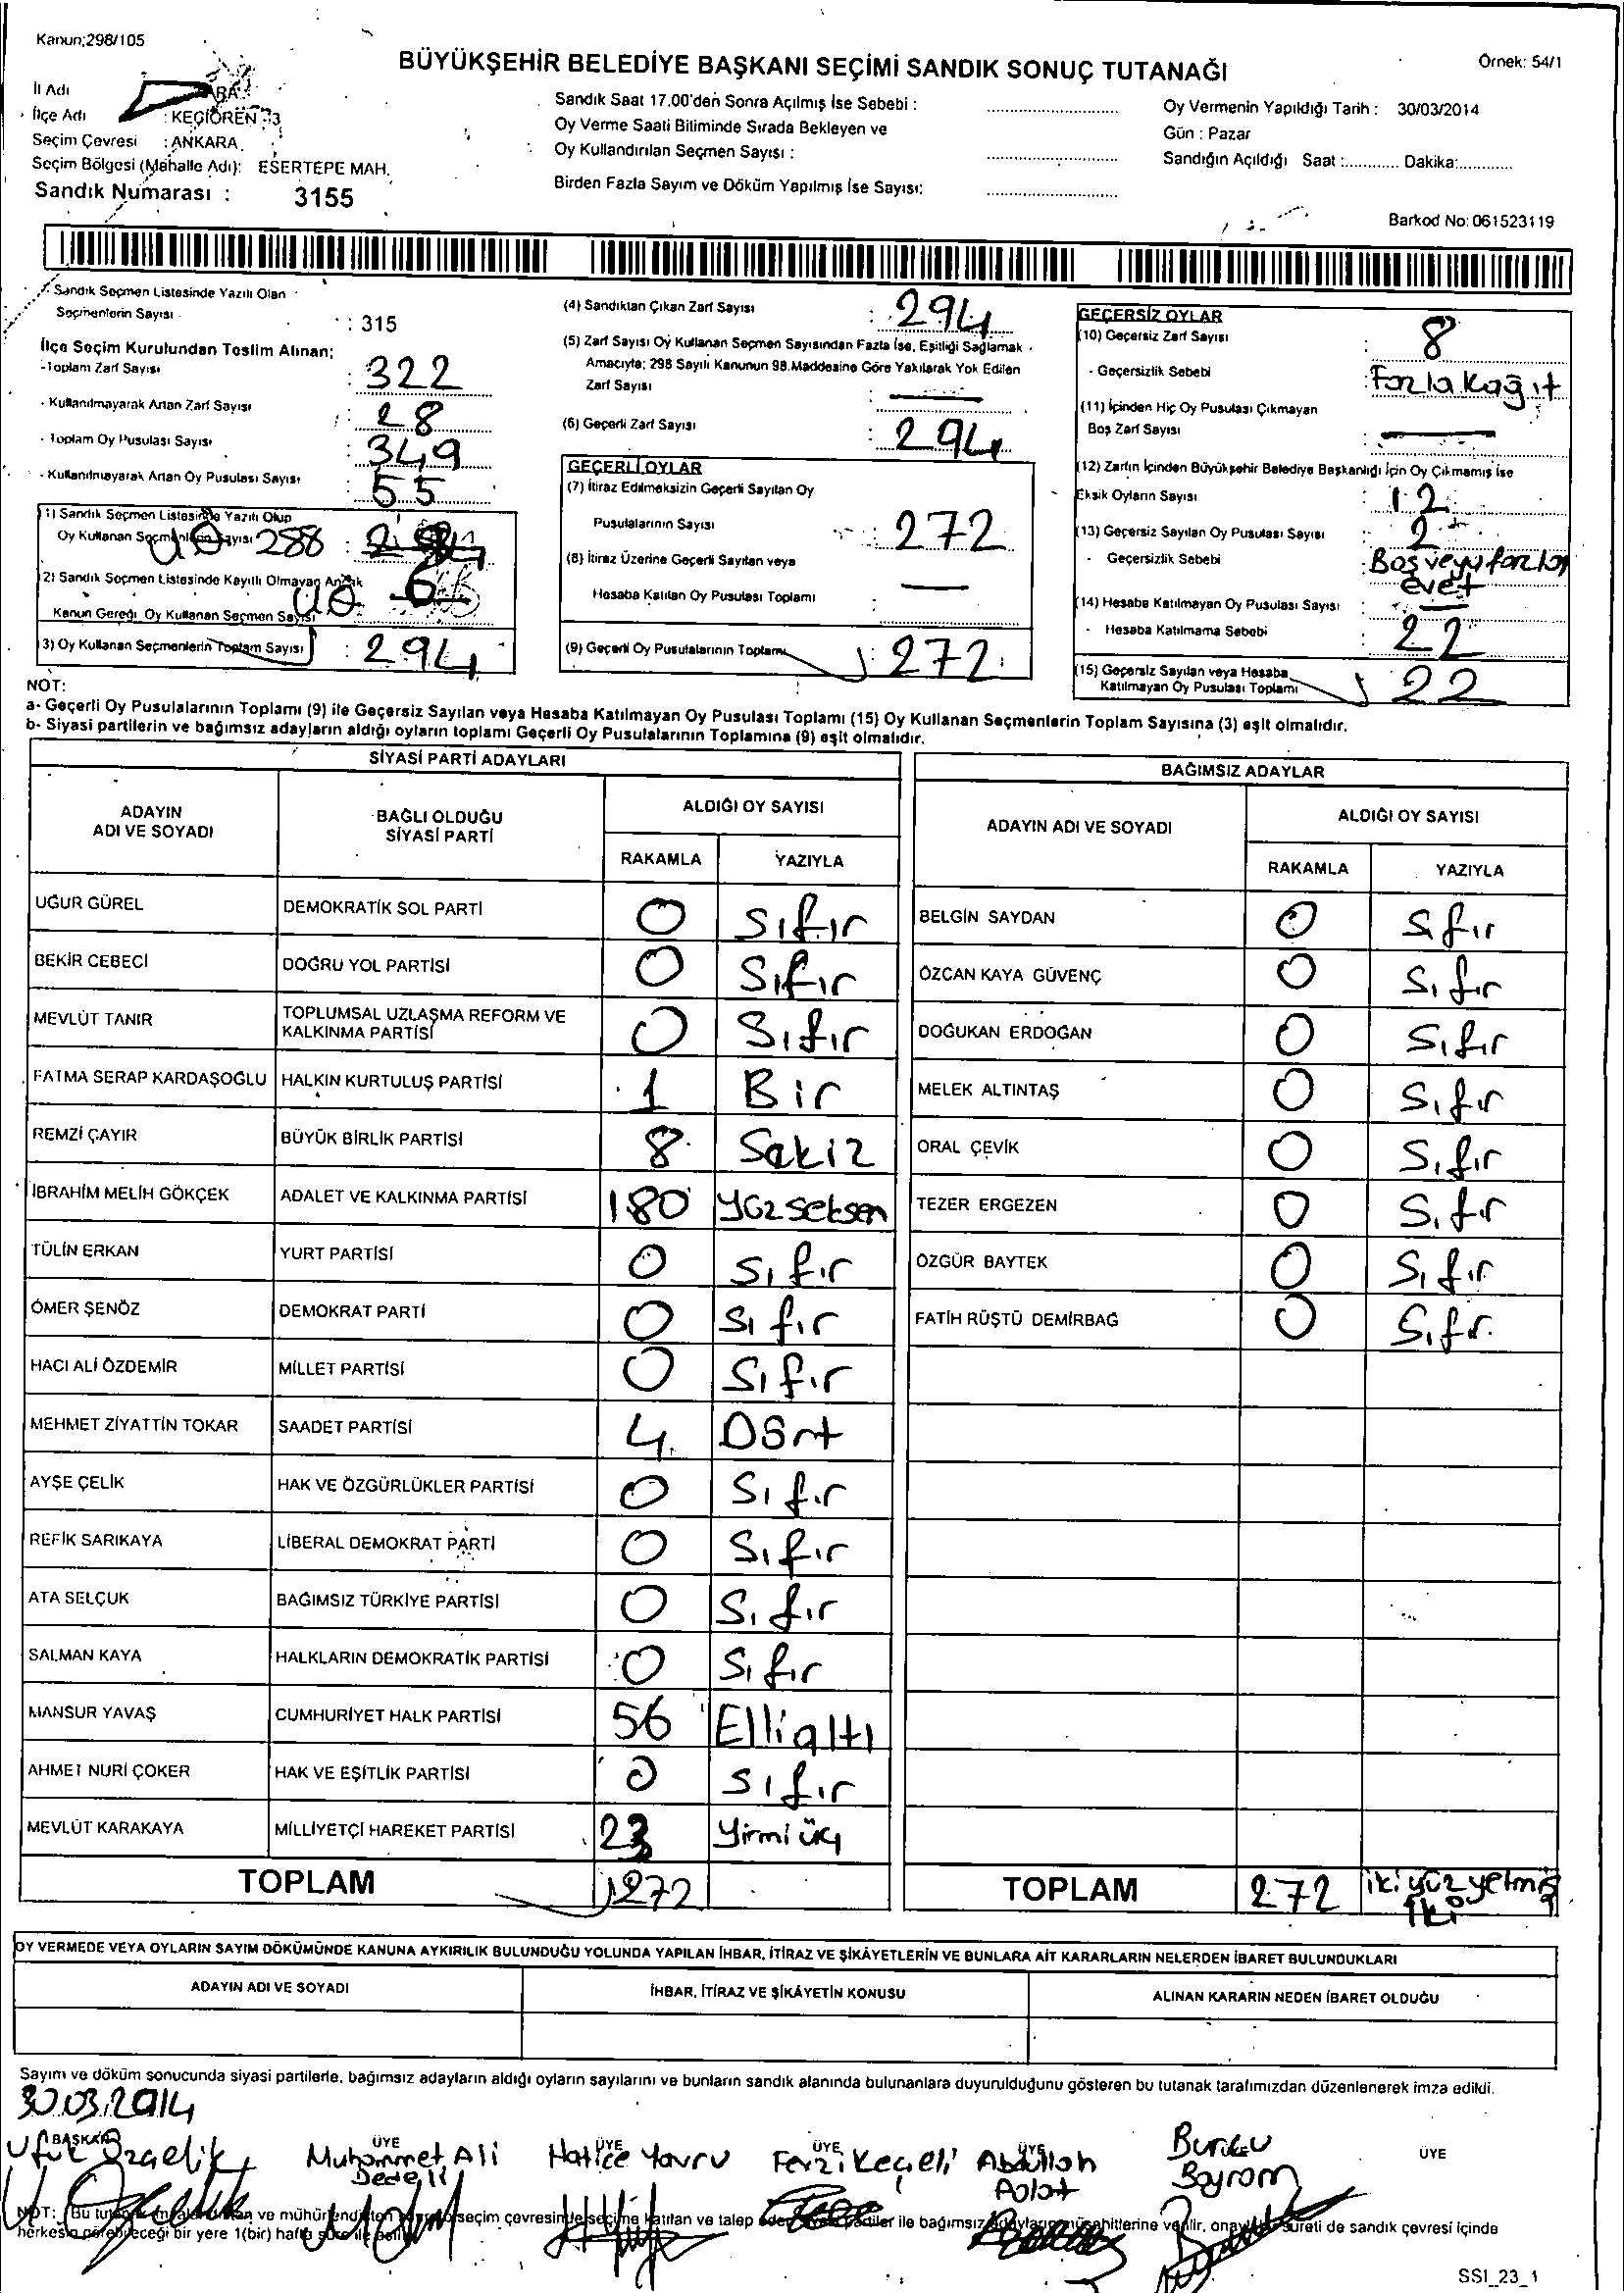 Kanun;298/105
BÜYÜKŞEHİR BELEDİYE BAŞKANI SEÇİMİ SANDIK SONUÇ TUTANAĞI
Örnek: 54/1
İl Adı
İlçe Adı : KEÇİÖREN 3
Seçim Çevresi : ANKARA
Seçim Bölgesi (Mahalle Adı): ESERTEPE MAH.
Sandık Numarası : 3155
Sandık Saat 17.00'den Sonra Açılmış İse Sebebi :
Oy Verme Saati Bitiminde Sırada Bekleyen ve
Oy Kullandırılan Seçmen Sayısı :
Birden Fazla Sayım ve Döküm Yapılmış İse Sayısı:
Oy Vermenin Yapıldığı Tarih : 30/03/2014
Gün : Pazar
Sandığın Açıldığı Saat :............ Dakika:............
Barkod No: 061523119
Sandık Seçmen Listesinde Yazılı Olan
Seçmenlerin Sayısı : 315
İlçe Seçim Kurulundan Teslim Alınan:
-Toplam Zarf Sayısı : 322
- Kullanılmayarak Artan Zarf Sayısı : 28
- Toplam Oy Pusulası Sayısı : 349
- Kullanılmayarak Artan Oy Pusulası Sayısı : 55
(1) Sandık Seçmen Listesinde Yazılı Olup
Oy Kullanan Seçmenlerin Sayısı 288
(2) Sandık Seçmen Listesinde Kayıtlı Olmayan Ancak
Kanun Gereği Oy Kullanan Seçmen Sayısı
(3) Oy Kullanan Seçmenlerin Toplam Sayısı : 294
(4) Sandıktan Çıkan Zarf Sayısı : 294
(5) Zarf Sayısı Oy Kullanan Seçmen Sayısından Fazla İse, Eşitliği Sağlamak
Amacıyla; 298 Sayılı Kanunun 98.Maddesine Göre Yakılarak Yok Edilen
Zarf Sayısı : —
(6) Geçerli Zarf Sayısı : 294
GEÇERLİ OYLAR
(7) İtiraz Edilmeksizin Geçerli Sayılan Oy
Pusulalarının Sayısı : 272
(8) İtiraz Üzerine Geçerli Sayılan veya
Hesaba Katılan Oy Pusulası Toplamı : —
(9) Geçerli Oy Pusulalarının Toplamı : 272
GEÇERSİZ OYLAR
(10) Geçersiz Zarf Sayısı : 8
- Geçersizlik Sebebi : Fazla Kağıt
(11) İçinden Hiç Oy Pusulası Çıkmayan
Boş Zarf Sayısı : —
(12) Zarfın İçinden Büyükşehir Belediye Başkanlığı İçin Oy Çıkmamış İse
Eksik Oyların Sayısı : 12
(13) Geçersiz Sayılan Oy Pusulası Sayısı : 2
- Geçersizlik Sebebi : Boş veya fazla
evet
(14) Hesaba Katılmayan Oy Pusulası Sayısı : —
- Hesaba Katılmama Sebebi : 22
(15) Geçersiz Sayılan veya Hesaba
Katılmayan Oy Pusulası Toplamı 22
NOT:
a- Geçerli Oy Pusulalarının Toplamı (9) ile Geçersiz Sayılan veya Hesaba Katılmayan Oy Pusulası Toplamı (15) Oy Kullanan Seçmenlerin Toplam Sayısına (3) eşit olmalıdır.
b- Siyasi partilerin ve bağımsız adayların aldığı oyların toplamı Geçerli Oy Pusulalarının Toplamına (9) eşit olmalıdır.
SİYASİ PARTİ ADAYLARI
ADAYIN ADI VE SOYADI BAĞLI OLDUĞU SİYASİ PARTİ ALDIĞI OY SAYISI
RAKAMLA YAZIYLA
UĞUR GÜREL DEMOKRATİK SOL PARTİ 0 Sıfır
BEKİR CEBECİ DOĞRU YOL PARTİSİ 0 Sıfır
MEVLÜT TANIR TOPLUMSAL UZLAŞMA REFORM VE KALKINMA PARTİSİ 0 Sıfır
FATMA SERAP KARDAŞOĞLU HALKIN KURTULUŞ PARTİSİ 1 Bir
REMZİ ÇAYIR BÜYÜK BİRLİK PARTİSİ 8 Sekiz
İBRAHİM MELİH GÖKÇEK ADALET VE KALKINMA PARTİSİ 180 Yüzseksen
TÜLİN ERKAN YURT PARTİSİ 0 Sıfır
ÖMER ŞENÖZ DEMOKRAT PARTİ 0 Sıfır
HACI ALİ ÖZDEMİR MİLLET PARTİSİ 0 Sıfır
MEHMET ZİYATTİN TOKAR SAADET PARTİSİ 4 Dört
AYŞE ÇELİK HAK VE ÖZGÜRLÜKLER PARTİSİ 0 Sıfır
REFİK SARIKAYA LİBERAL DEMOKRAT PARTİ 0 Sıfır
ATA SELÇUK BAĞIMSIZ TÜRKİYE PARTİSİ 0 Sıfır
SALMAN KAYA HALKLARIN DEMOKRATİK PARTİSİ 0 Sıfır
MANSUR YAVAŞ CUMHURİYET HALK PARTİSİ 56 Elli altı
AHMET NURİ ÇOKER HAK VE EŞİTLİK PARTİSİ 0 Sıfır
MEVLÜT KARAKAYA MİLLİYETÇİ HAREKET PARTİSİ 23 Yirmi üç
TOPLAM 272
BAĞIMSIZ ADAYLAR
ADAYIN ADI VE SOYADI ALDIĞI OY SAYISI
RAKAMLA YAZIYLA
BELGİN SAYDAN 0 Sıfır
ÖZCAN KAYA GÜVENÇ 0 Sıfır
DOĞUKAN ERDOĞAN 0 Sıfır
MELEK ALTINTAŞ 0 Sıfır
ORAL ÇEVİK 0 Sıfır
TEZER ERGEZEN 0 Sıfır
ÖZGÜR BAYTEK 0 Sıfır
FATİH RÜŞTÜ DEMİRBAĞ 0 Sıfır.
TOPLAM 272 iki yüz yetmiş iki
OY VERMEDE VEYA OYLARIN SAYIM DÖKÜMÜNDE KANUNA AYKIRILIK BULUNDUĞU YOLUNDA YAPILAN İHBAR, İTİRAZ VE ŞİKÂYETLERİN VE BUNLARA AİT KARARLARIN NELERDEN İBARET BULUNDUKLARI
ADAYIN ADI VE SOYADI İHBAR, İTİRAZ VE ŞİKÂYETİN KONUSU ALINAN KARARIN NEDEN İBARET OLDUĞU
Sayım ve döküm sonucunda siyasi partilerle, bağımsız adayların aldığı oyların sayılarını ve bunların sandık alanında bulunanlara duyurulduğunu gösteren bu tutanak tarafımızdan düzenlenerek imza edildi.
30.03.2014
BAŞKAN ÜYE ÜYE ÜYE ÜYE ÜYE
Ufuk Özçelik Muhammet Ali Dedeli Hatice Yavru Fevzi Keçeli Abdullah Polat Burcu Bayram
NOT: Bu ve mühürlendikten seçim çevresinde seçime katılan ve talep eden partiler ile bağımsız adayların müşahitlerine verilir, onaylı sureti de sandık çevresi içinde
herkesin görebileceği bir yere 1(bir) hafta süre ile
SSI_23_1